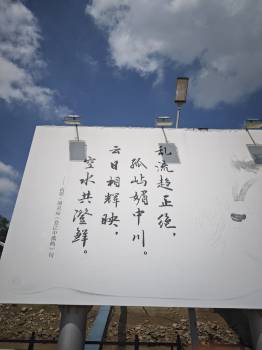 乱流趋正绝，
孤屿媚中川。
云日相辉映，
空水共澄鲜。
——南朝·谢灵运《登江中孤屿》句